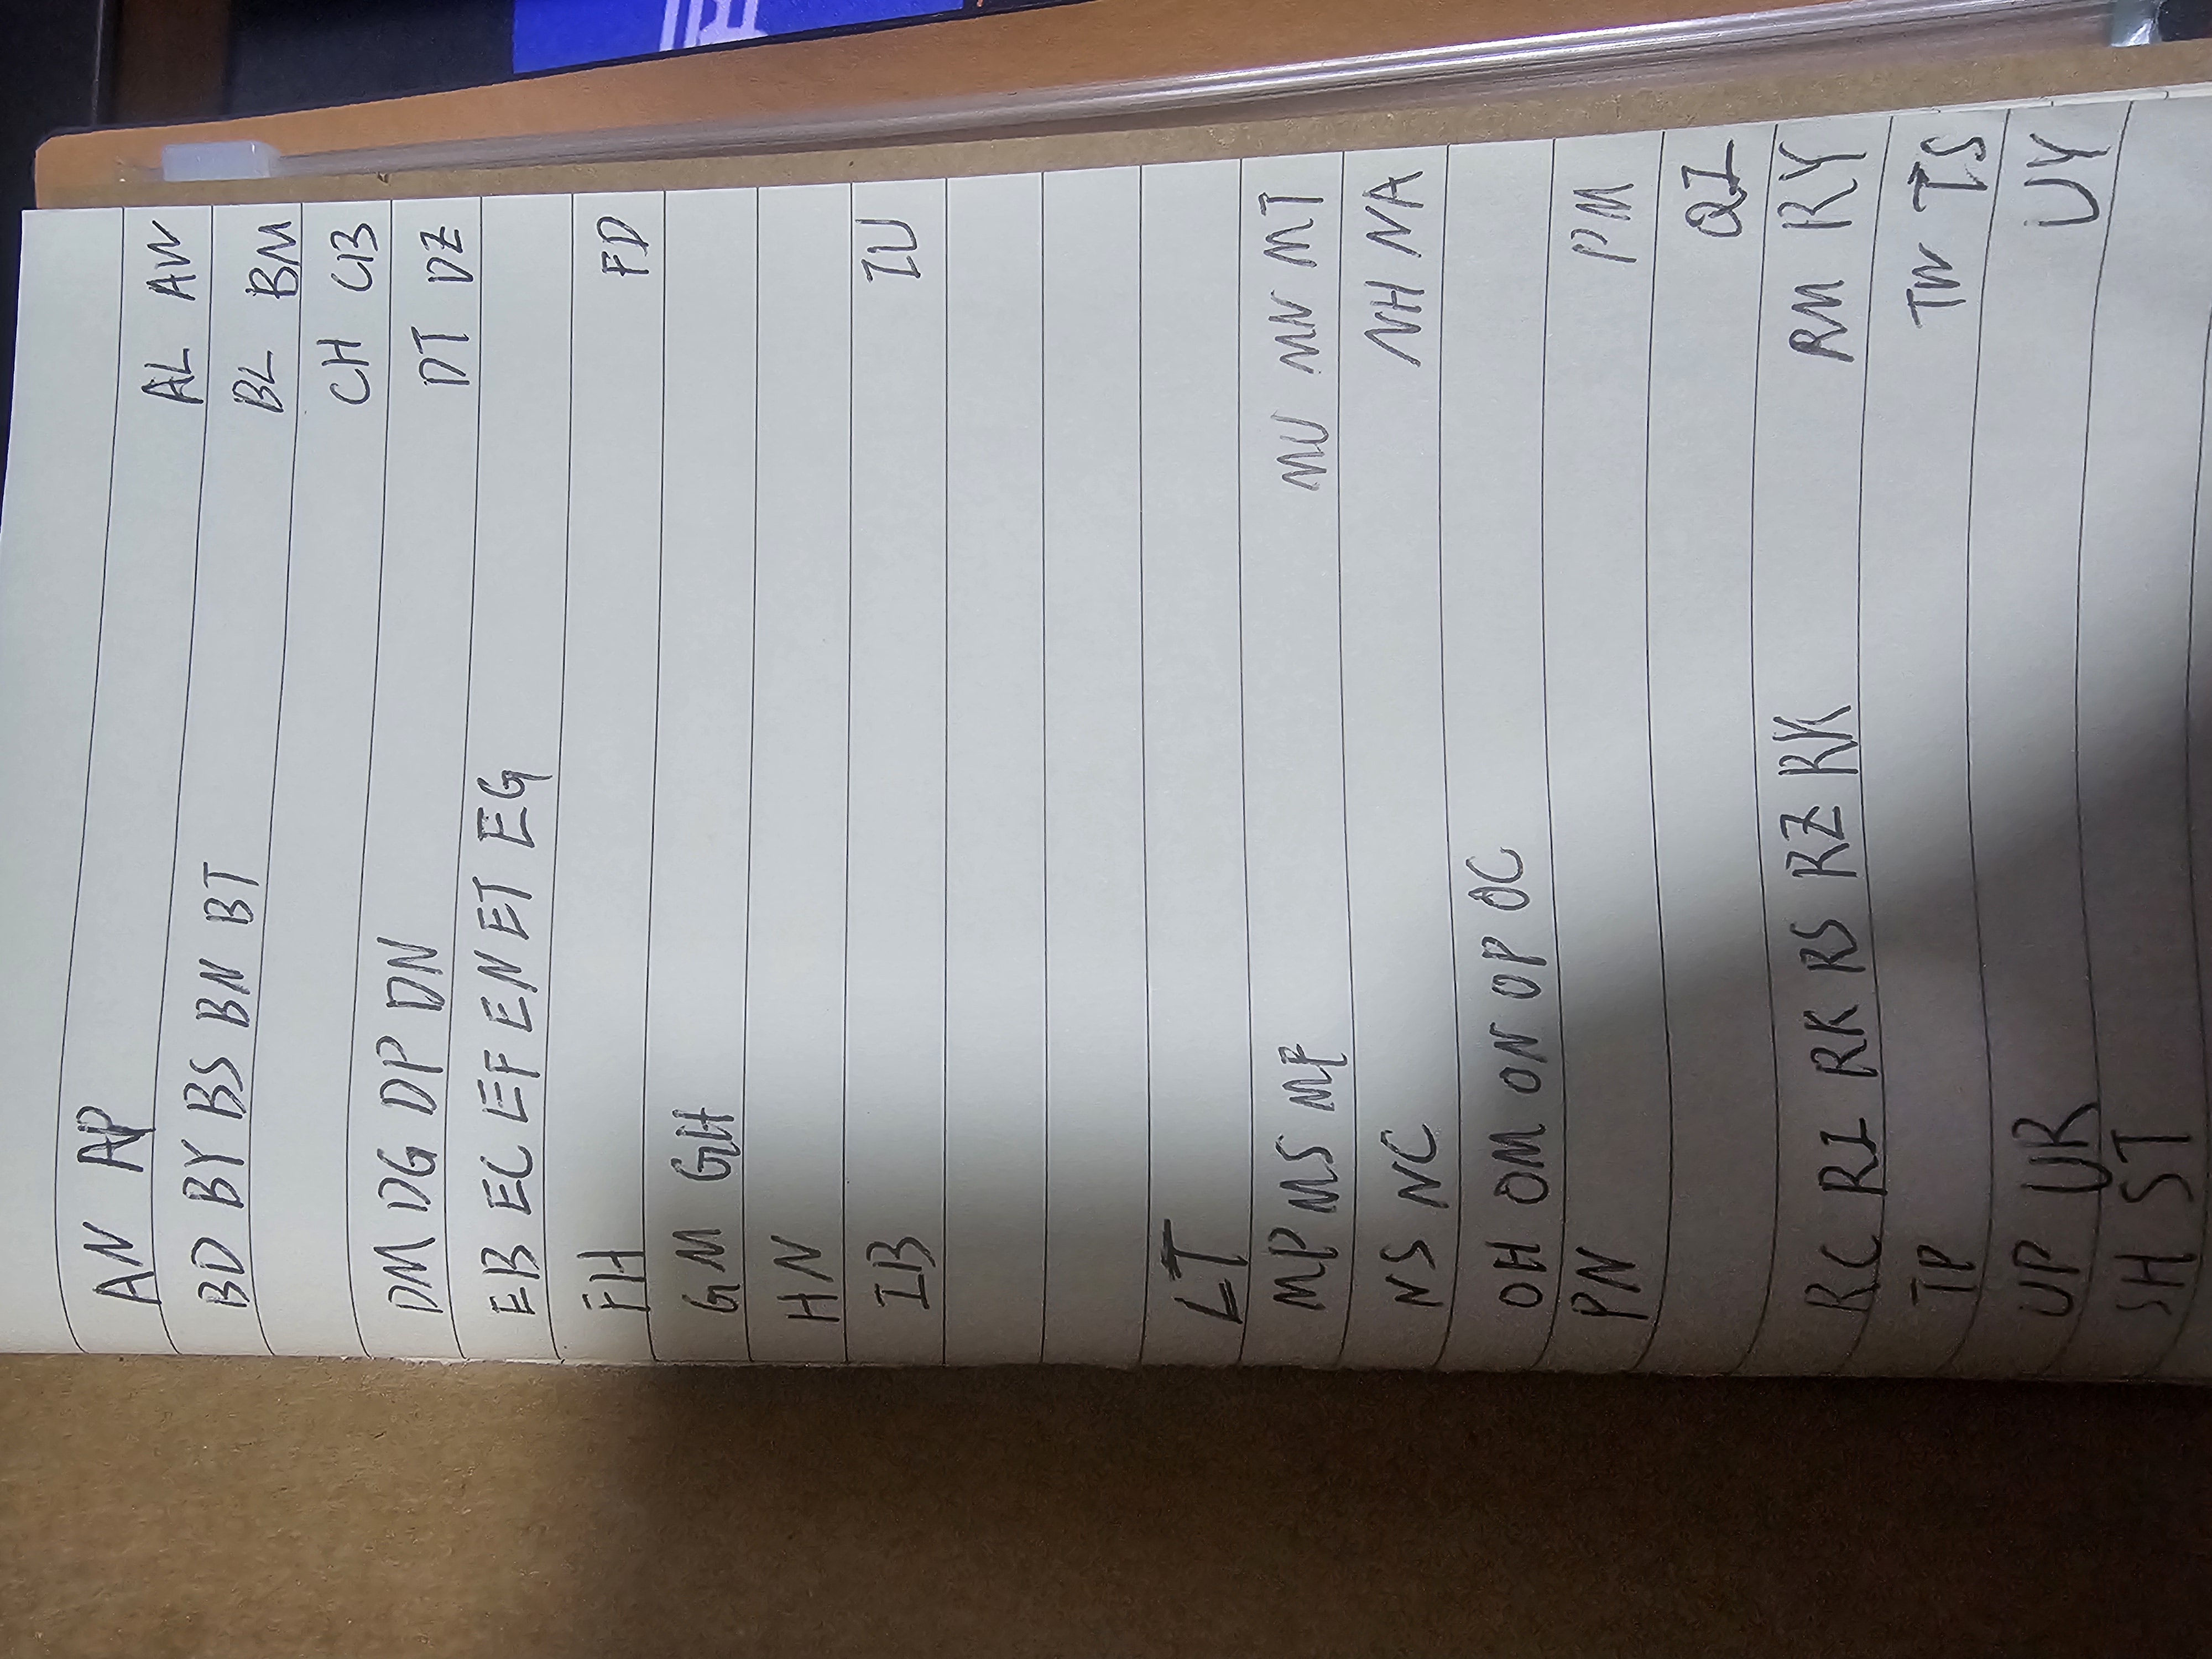 AN AP
AL AW
BD BY BS BN BT BL BM
CH CB
DM DG DP DN DT DZ
EB EC EF EN ET EG
FH FD
GM GH
HN
IB IU
LT
MP MS MF MU MN MT
NS NC NH NA
OH OM ON OP OC
PN PM
QI
RC RI RK RS RZ RK RM RY
TP TW TS
UP UR UY
SH ST